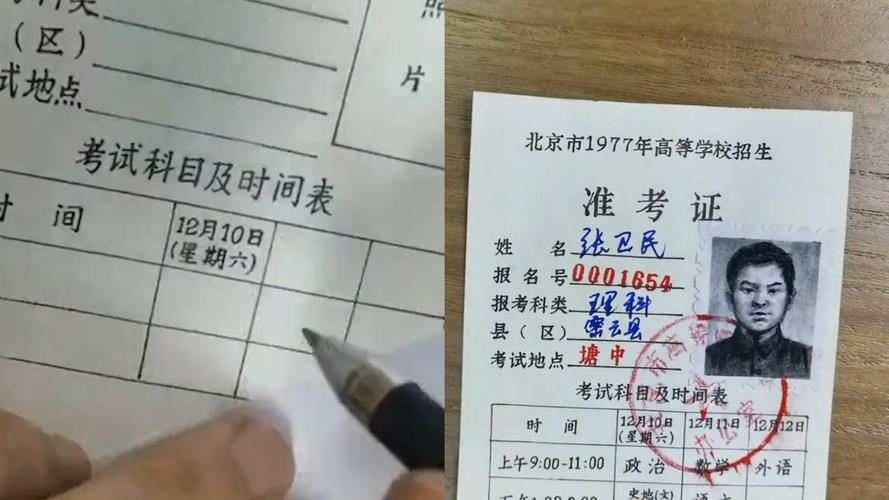 科类
（区）
试地点
照
片
考试科目及时间表
时 间
12月10日
(星期六)
北京市1977年高等学校招生
准考证
姓 名 张卫民
报名号 0001654
报考科类 理科
县（区） 密云县
考试地点 塘中
考试科目及时间表
时 间 12月10日 12月11日 12月12日
(星期六)
上午9:00-11:00 政治 数学 外语
史地(文)
语文
办公室